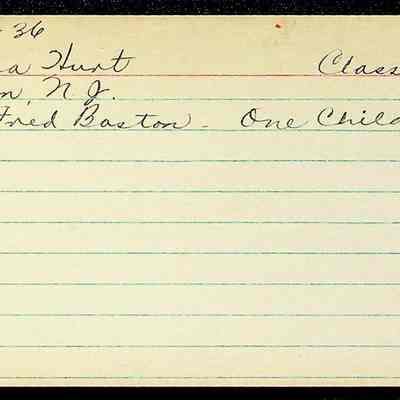 - 36
a Hurt Class
n, N. J.
Fred Boston - One Child